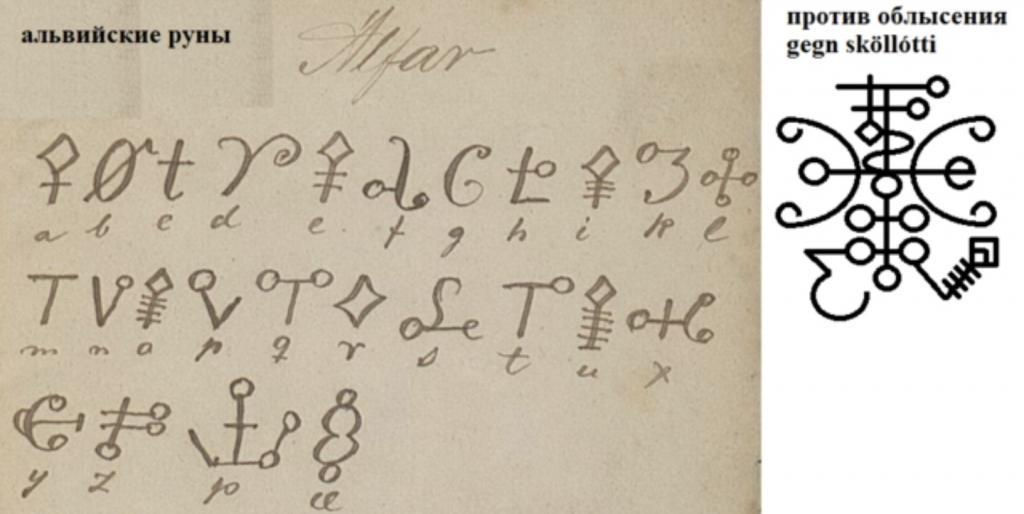 альвийские руны
Alfar
a b c d e f g h i k l
m n o p q r s t u x
y z þ æ
против облысения
gegn sköllótti